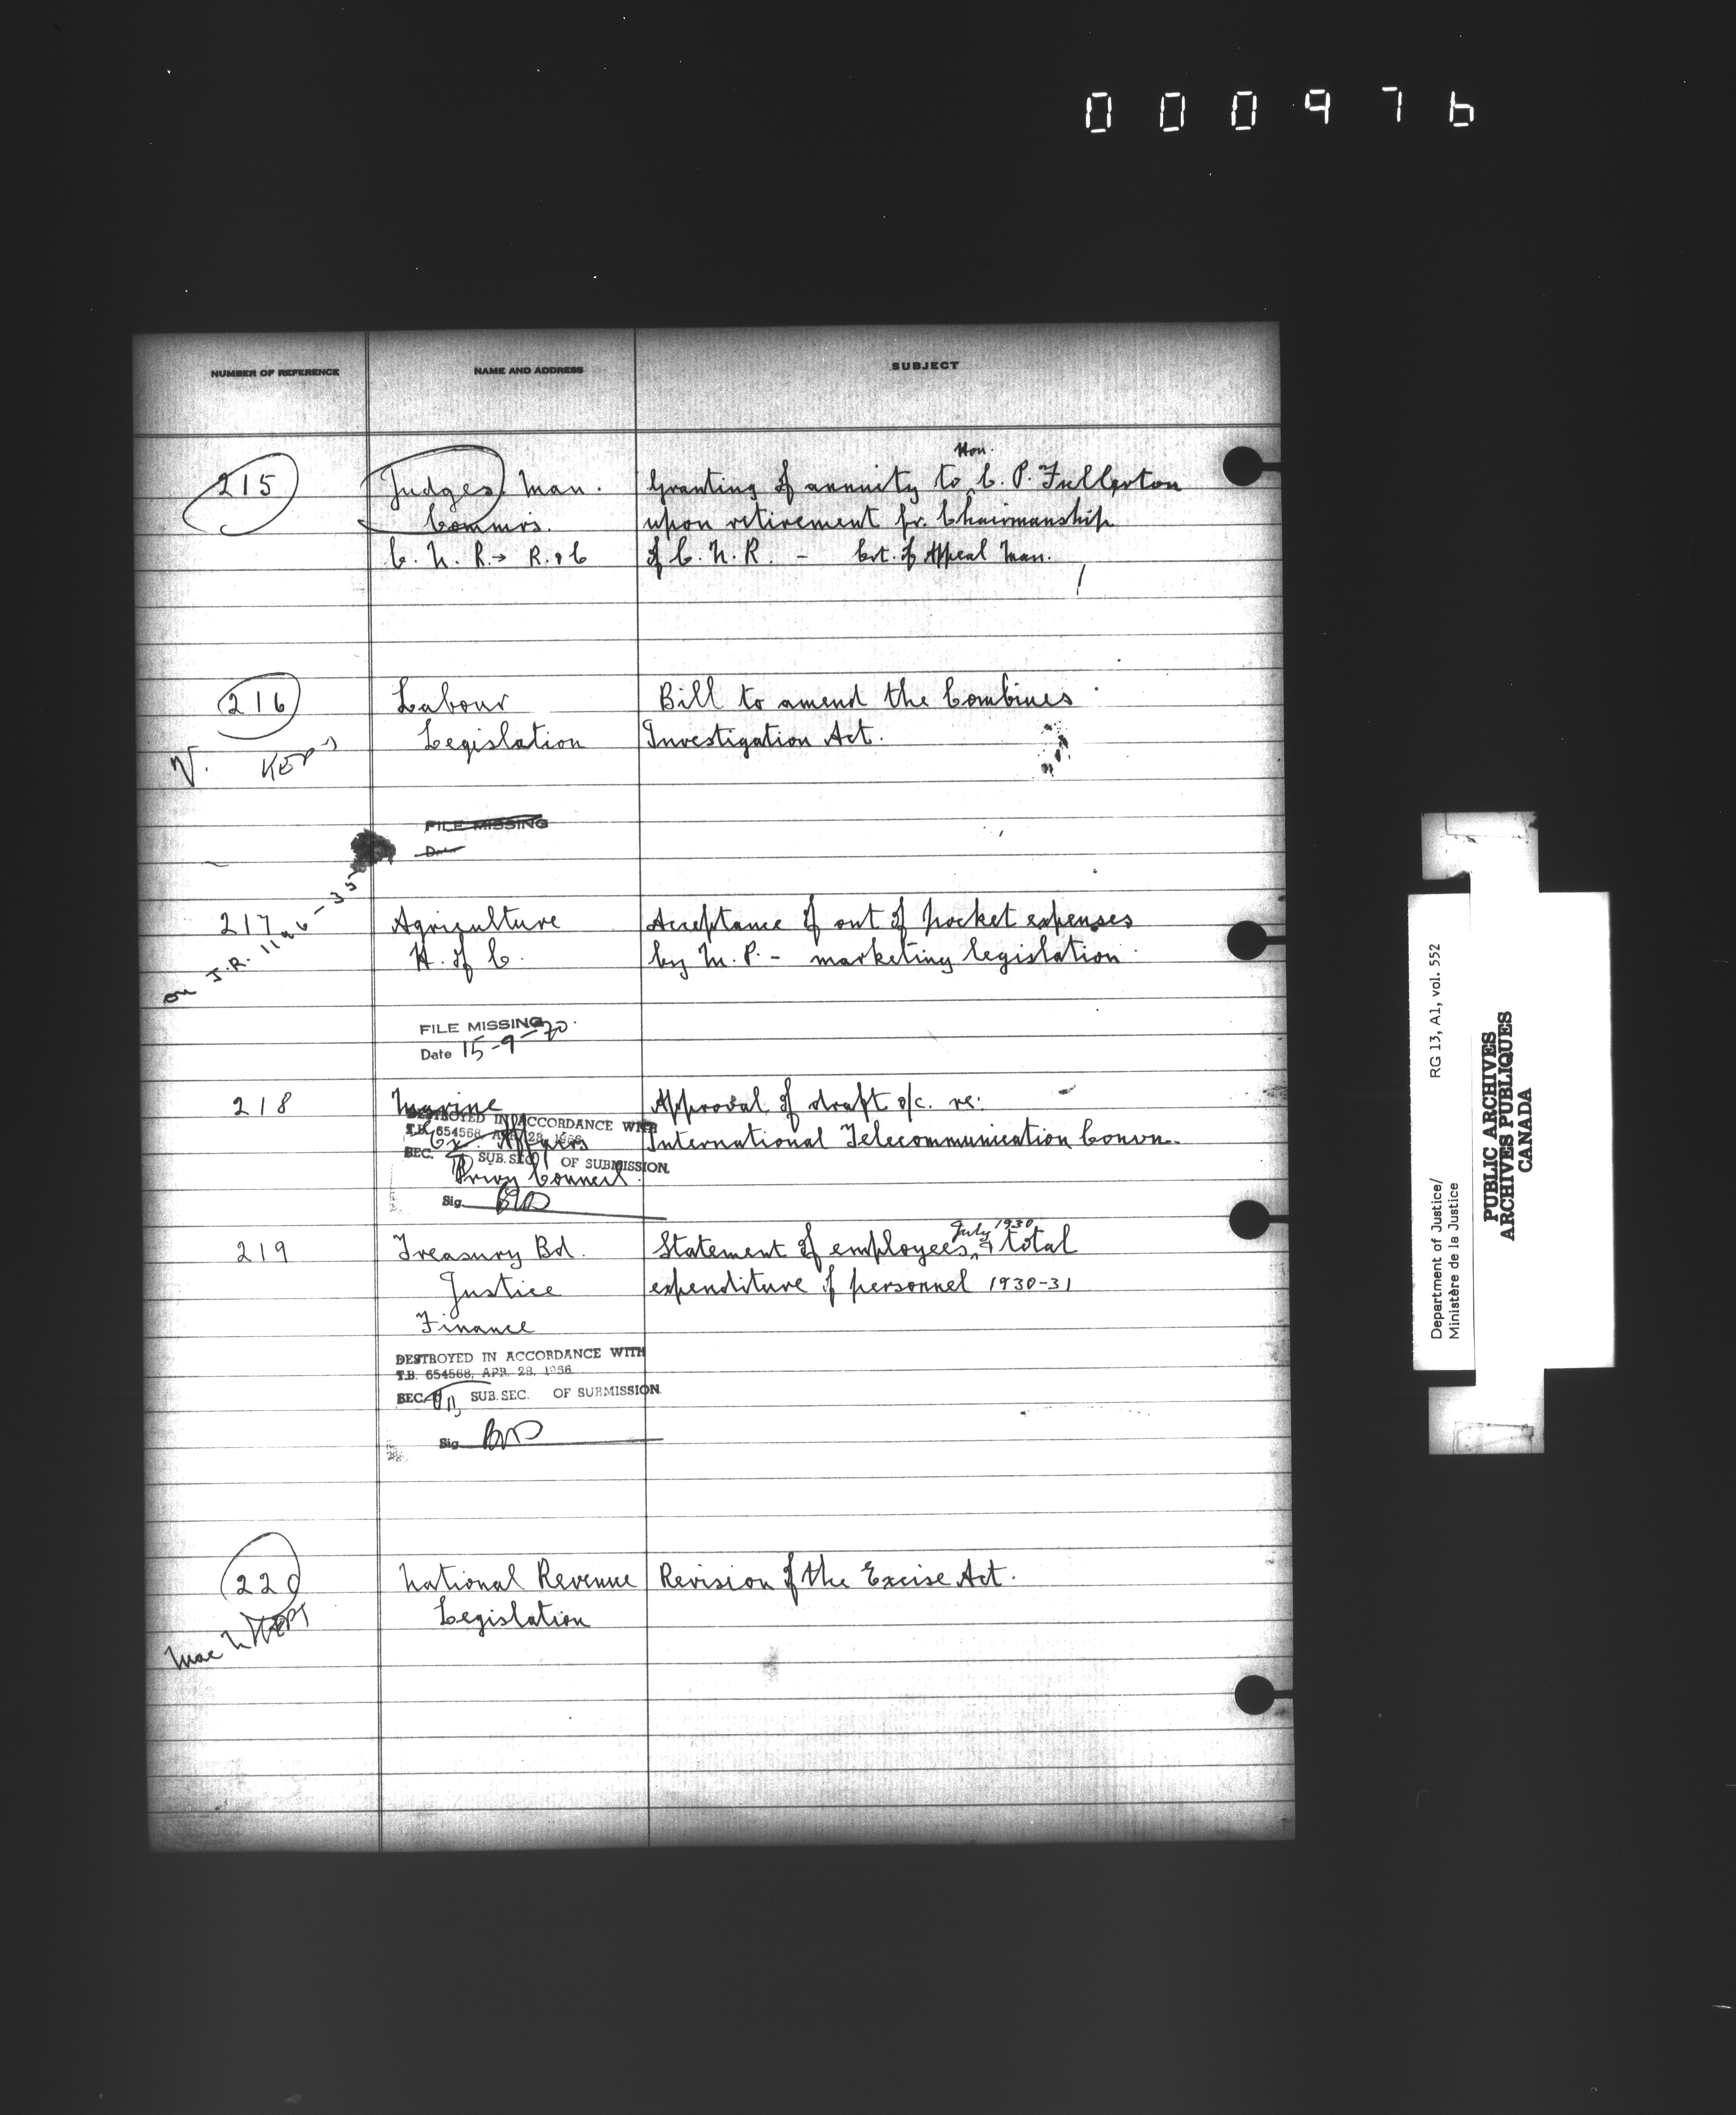 000976
NUMBER OF REFERENCE NAME AND ADDRESS SUBJECT
Hon.
215 Judges. Man. Granting of annuity to C. P. Fullerton
Commrs. upon retirement fr. Chairmanship
C. N. R. → R. & C of C. N. R. - Crt. of Appeal Man.
216 Labour Bill to amend the Combines
Legislation Investigation Act.
N. KEPT
FILE MISSING
Date
217 Agriculture Acceptance of out of pocket expenses
H. of C. by M. P. - marketing legislation
on J.R. 1126-35
FILE MISSING
Date 15-9-70.
218 Marine Approval of draft o/c. re:
DESTROYED IN ACCORDANCE WITH
T.B. 654568, APR 28, 1966
Ex. Affairs International Telecommunication Convn.
SEC. SUB. SEC. OF SUBMISSION
Privy Council
Sig.
July 1930
219 Treasury Bd. Statement of employees, & total
Justice expenditure of personnel 1930-31
Finance
DESTROYED IN ACCORDANCE WITH
T.B. 654568, APR. 28, 1966
SEC. SUB. SEC. OF SUBMISSION
Sig.
220 National Revenue Revision of the Excise Act.
Legislation
Mac N KEPT
Department of Justice/ RG 13, A1, vol. 552
Ministère de la Justice
PUBLIC ARCHIVES
ARCHIVES PUBLIQUES
CANADA